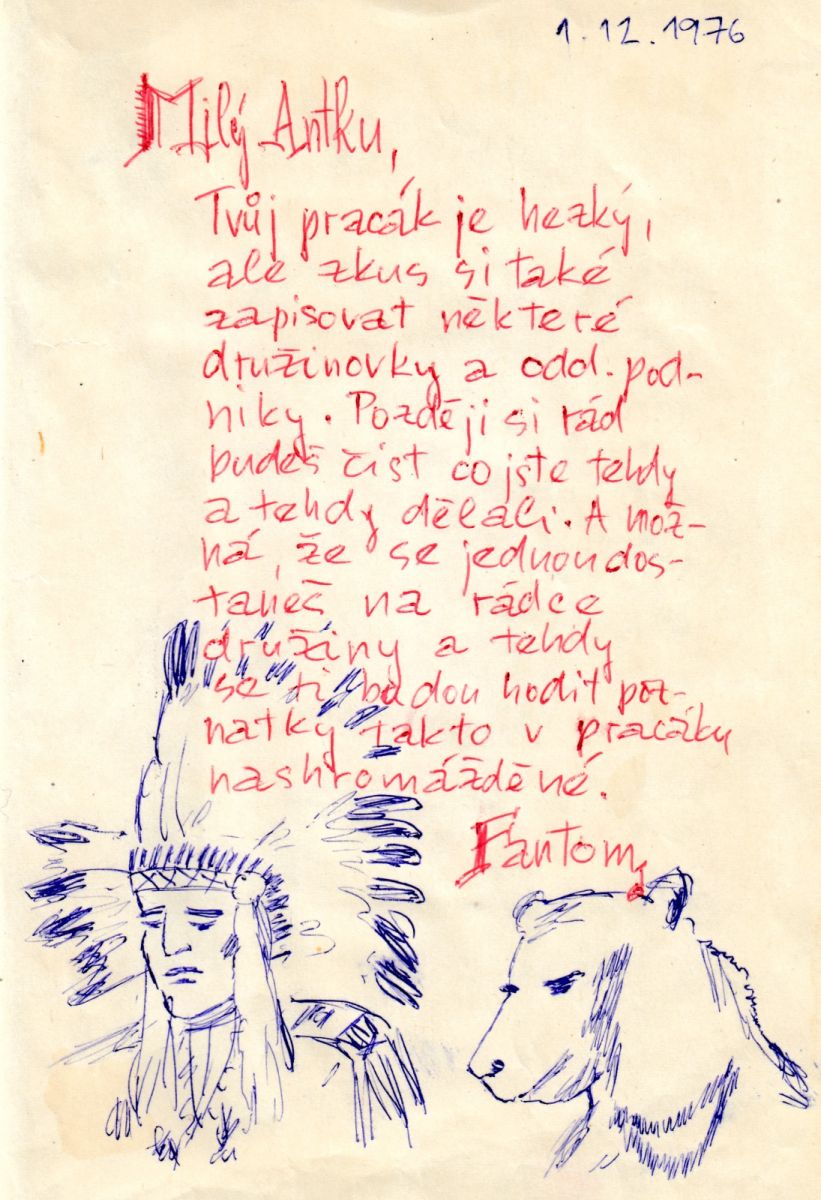 1.12.1976
Milý Antku,
Tvůj pracák je hezký,
ale zkus si také
zapisovat některé
družinovky a odd. pod-
niky. Později si rád
budeš číst co jste tehdy
a tehdy dělali. A mož-
ná, že se jednou dos-
taneš na rádce
družiny a tehdy
se ti budou hodit poz-
natky takto v pracáku
nashromážděné.
Fantom